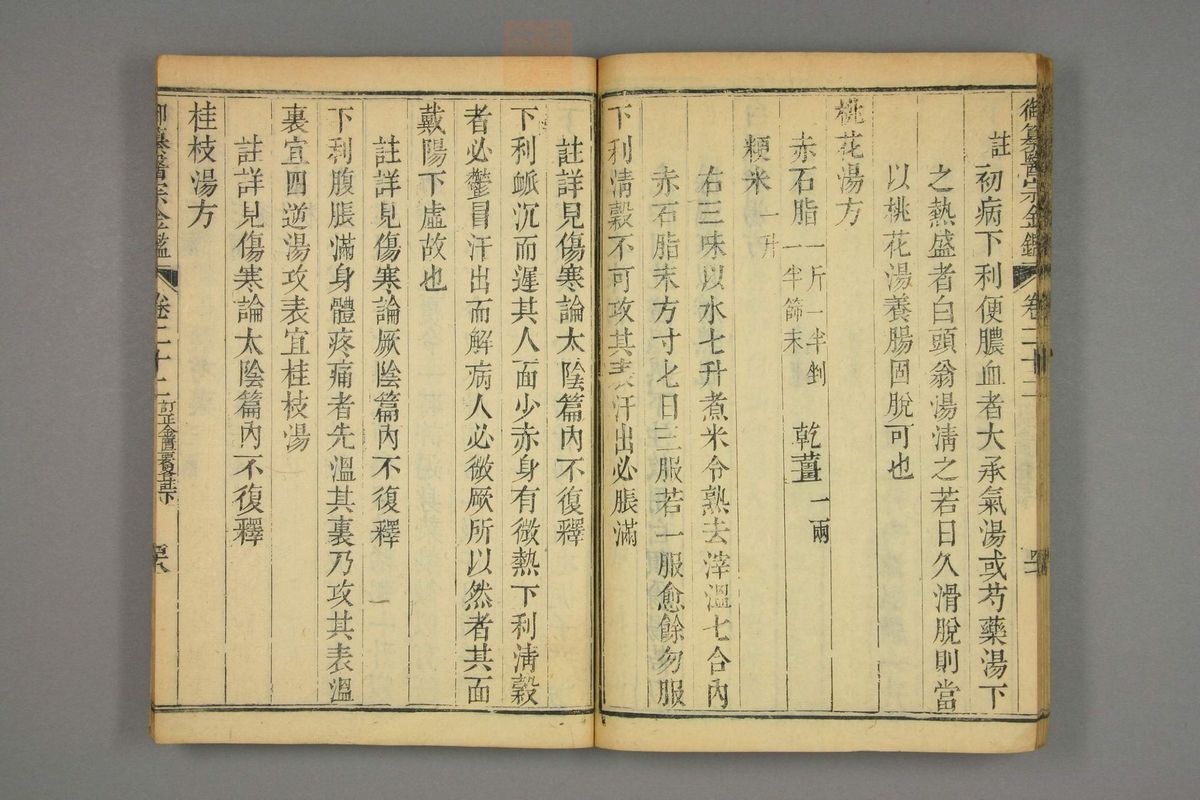 御纂醫宗金鑑 卷二十二
註初病下利便膿血者大承氣湯或芍藥湯下
之熱盛者白頭翁湯淸之若日久滑脫則當
以桃花湯養腸固脫可也
桃花湯方
赤石脂一斤一半剉一半篩末 乾薑一兩
粳米一升
右三味以水七升煮米令熟去滓溫七合內
赤石脂末方寸匕日三服若一服愈餘勿服
下利淸穀不可攻其表汗出必脹滿
註詳見傷寒論太陰篇內不復釋
下利脈沉而遲其人面少赤身有微熱下利淸穀
者必鬱冒汗出而解病人必微厥所以然者其面
戴陽下虛故也
註詳見傷寒論厥陰篇內不復釋
下利腹脹滿身體疼痛者先溫其裏乃攻其表溫
裏宜四逆湯攻表宜桂枝湯
註詳見傷寒論太陰篇內不復釋
桂枝湯方
御纂醫宗金鑑 卷二十二 訂正金匱要略註下